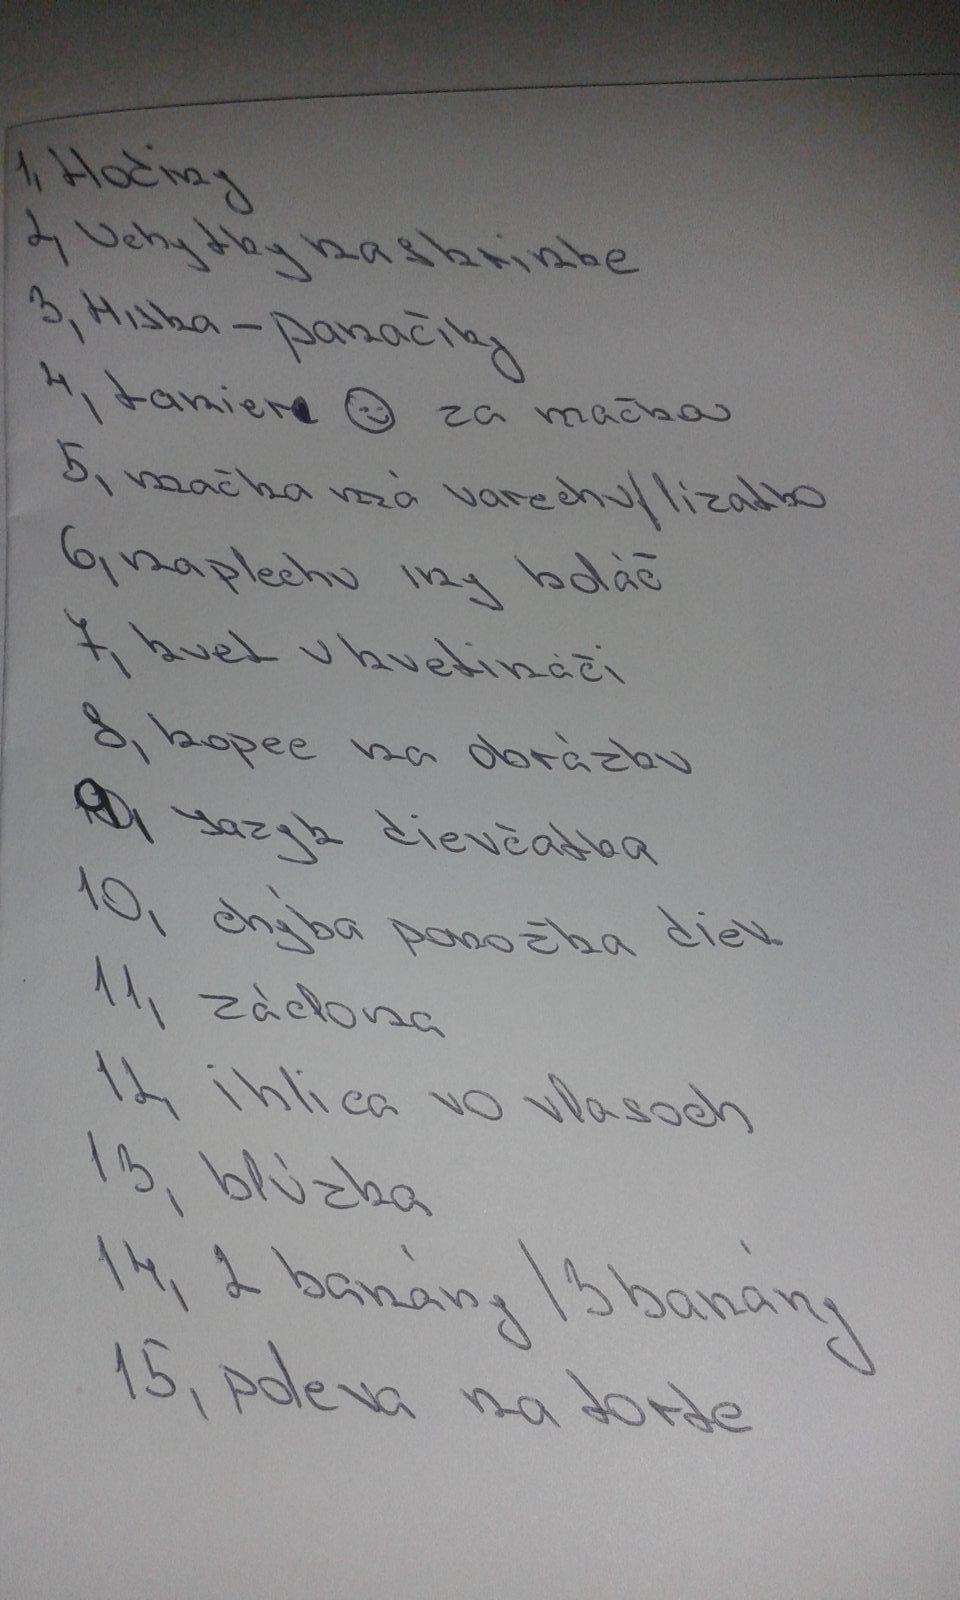 1, Hodiny
2, Uchytky na skrinke
3, Miska - panáčiky
4, tanier ☺ za mačkou
5, mačka má varechu/lizatko
6, na plechu iny koláč
7, kvet v kvetináči
8, kopec na obrázku
9, Jazyk dievčatka
10, chýba ponožka diev.
11, záclona
12, ihlica vo vlasoch
13, blúzka
14, 2 banány / 3 banány
15, poleva na torte